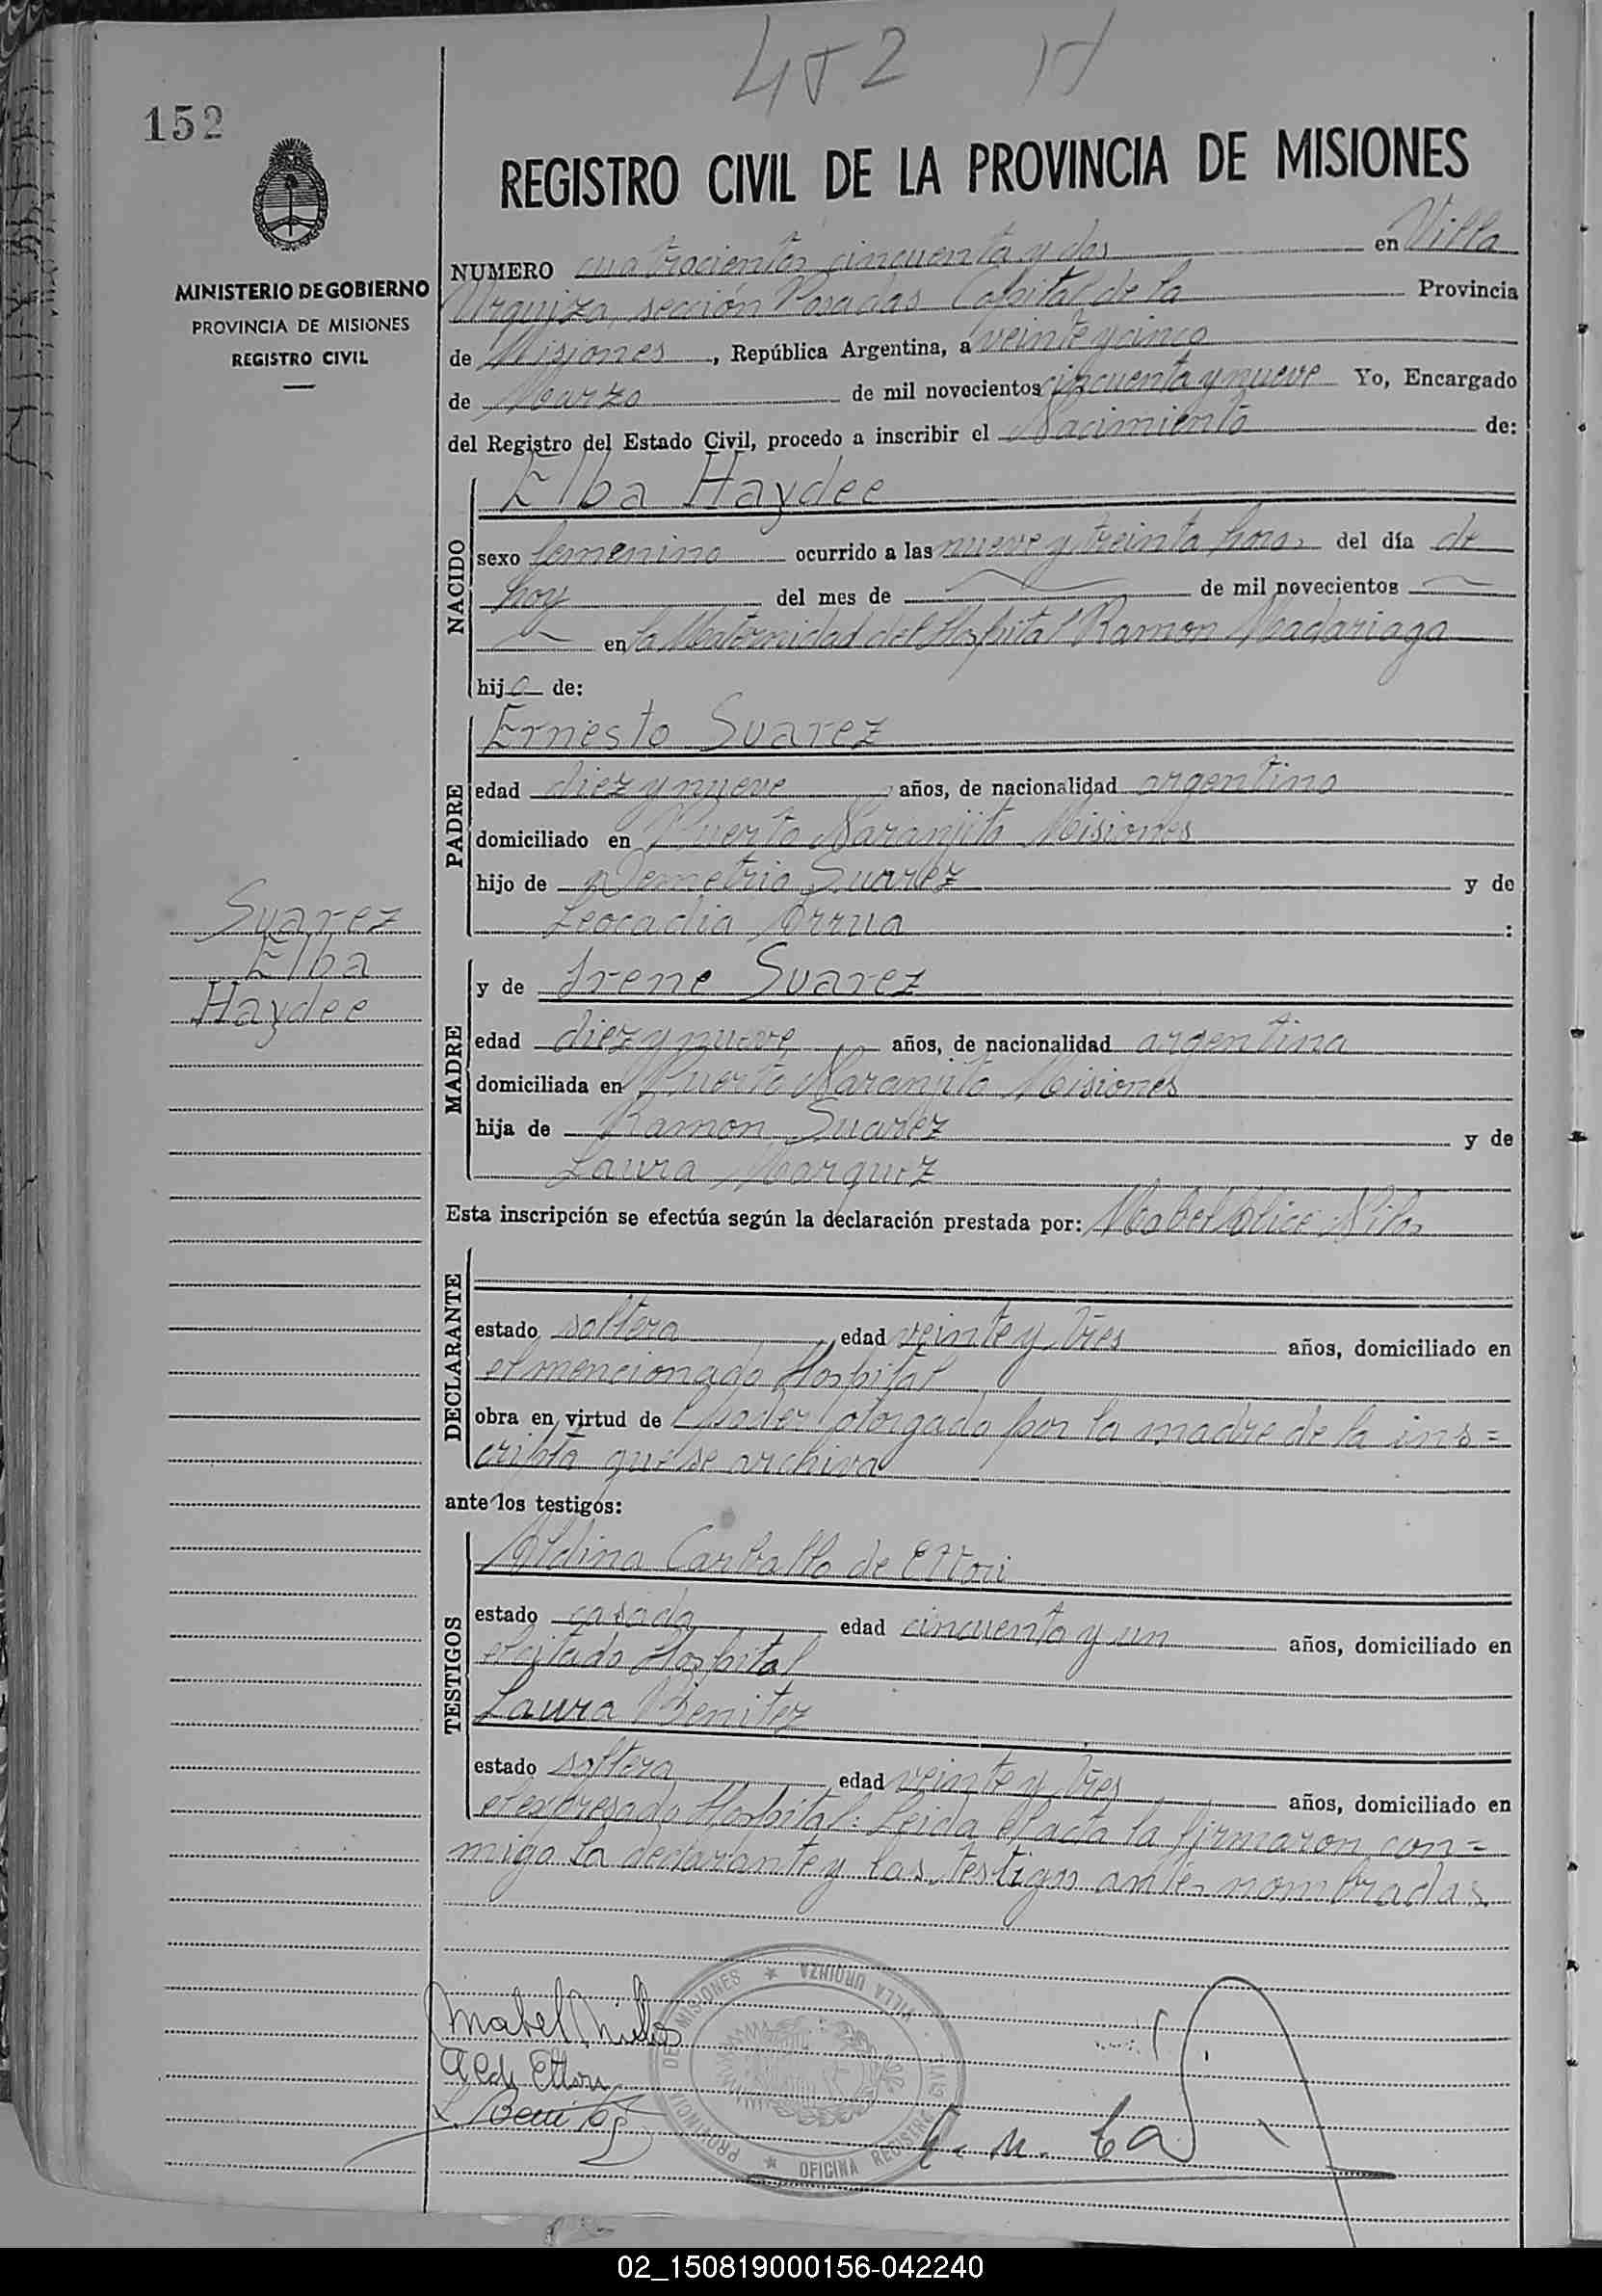 452
152
REGISTRO CIVIL DE LA PROVINCIA DE MISIONES
MINISTERIO DE GOBIERNO
PROVINCIA DE MISIONES
REGISTRO CIVIL
NUMERO cuatrocientos cincuenta y dos en Villa
Urquiza, sección Posadas Capital de la Provincia
de Misiones, República Argentina, a veinte y cinco
de Marzo de mil novecientos cincuenta y nueve Yo, Encargado
del Registro del Estado Civil, procedo a inscribir el Nacimiento de:
NACIDO
Elba Haydee
sexo femenino ocurrido a las nueve y treinta horas del día de
hoy del mes de de mil novecientos
en la Maternidad del Hospital Ramon Madariaga
hija de:
PADRE
Ernesto Suarez
edad diez y nueve años, de nacionalidad argentino
domiciliado en Puerto Naranjito Misiones
hijo de Demetrio Suarez y de
Leocadia Orrua:
Suarez
Elba
Haydee
MADRE
y de Irene Suarez
edad diez y nueve años, de nacionalidad argentina
domiciliada en Puerto Naranjito Misiones
hija de Ramon Suarez y de
Laura Marquez
Esta inscripción se efectúa según la declaración prestada por: Mabel Alice
DECLARANTE
estado soltera, edad veinte y tres años, domiciliado en
el mencionado Hospital
obra en virtud de poder otorgado por la madre de la ins=
cripta que se archiva
ante los testigos:
TESTIGOS
Aldina Carballo de Ettori
estado casada edad cincuenta y un años, domiciliado en
el citado Hospital
Laura Benitez
estado soltera, edad veinte y tres años, domiciliado en
el expresado Hospital: Leida el acta la firmaron con=
migo la declarante y las testigos antes nombradas
Mabel
A C de Ettori
L Benitez
PROVINCIA DE MISIONES ★ VILLA URQUIZA
OFICINA REGISTRO CIVIL ★
02_150819000156-042240